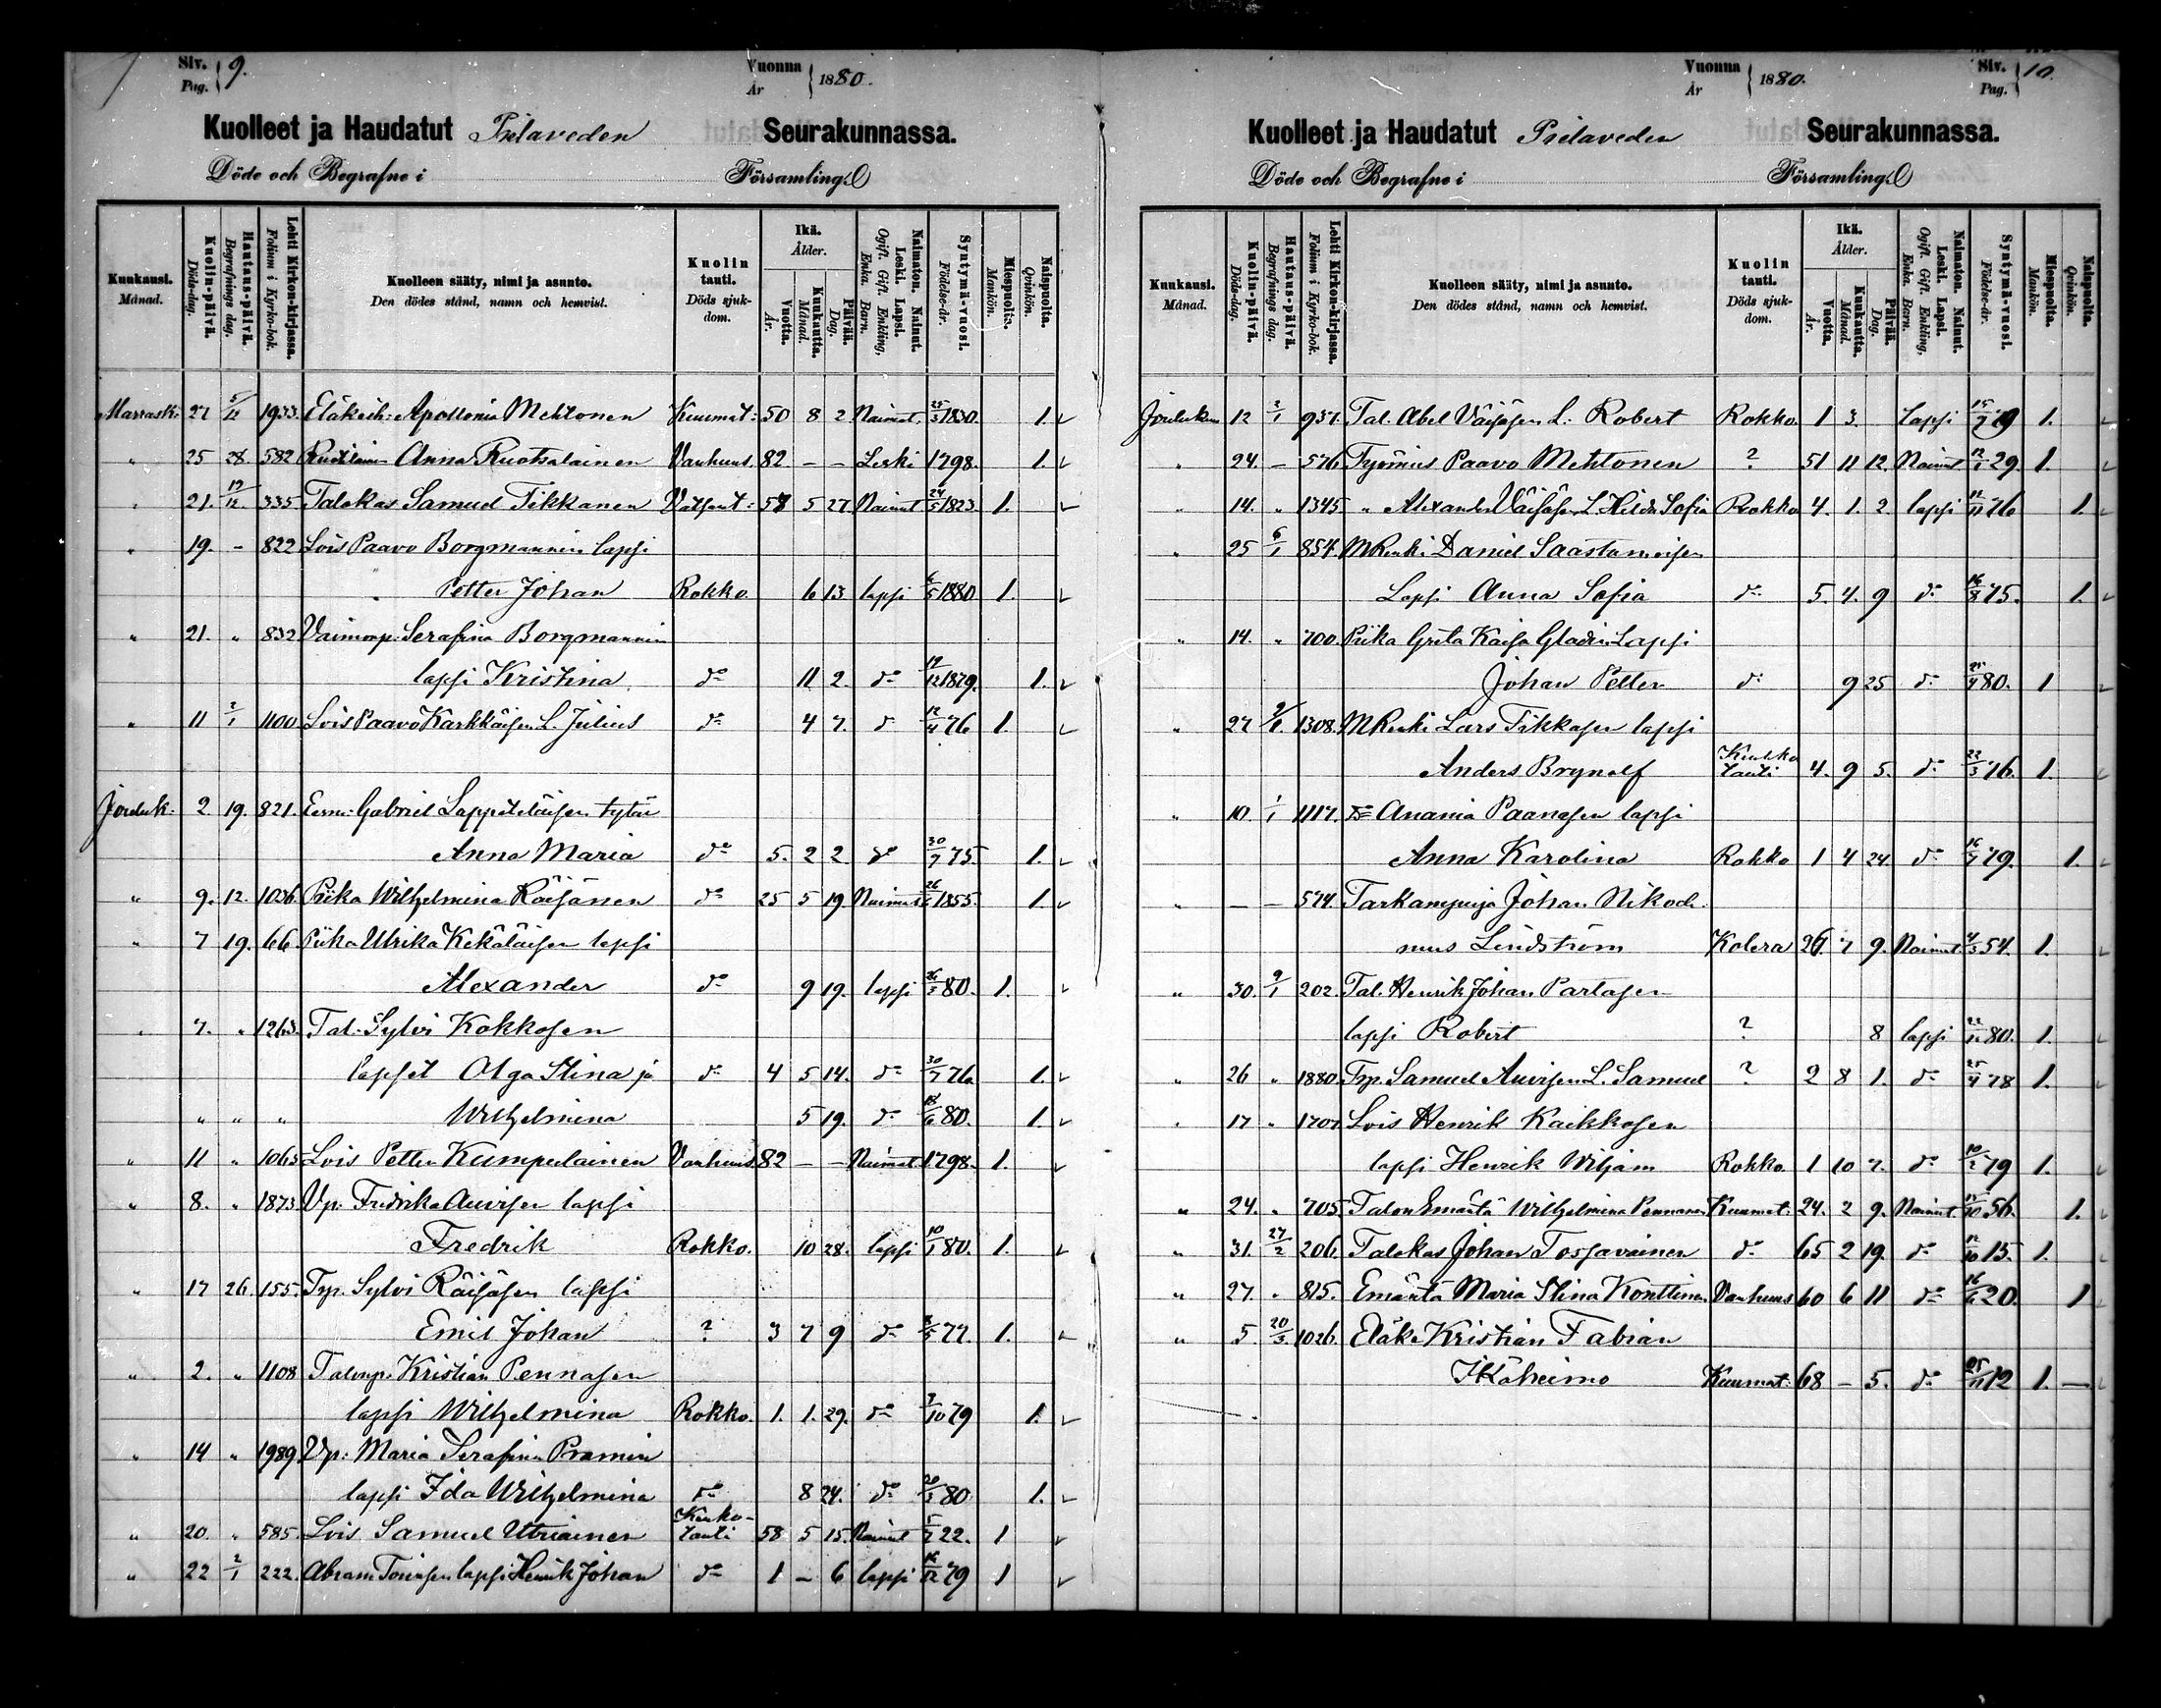 Siv. Pag. 9. Vuonna År 1880.
Kuolleet ja Haudatut Pielaveden Seurakunnassa.
Döde och Begrafne i Församling.
Kuukausi. Månad. Kuolin-päivä. Döds-dag. Hautaus-päivä. Begrafnings dag. Lehti Kirkon-kirjassa. Folium i Kyrko-bok. Kuolleen sääty, nimi ja asunto. Den dödes stånd, namn och hemvist. Kuolin tauti. Döds sjukdom. Ikä. Ålder. Vuotta. År. Kuukautta. Månad. Päivää. Dag. Naimaton. Nainut. Leski. Lapsi. Ogift. Gift. Enkling, Enka. Barn. Syntymä-vuosi. Födelse-år. Miespuolta. Mankön. Naispuolta. Qvinkön.
Marrask: 27 5/12 1933. Eläkeih: Apollonia Mehtonen Kuumat: 50 8 2 Nainut. 25/3 1830. 1.
" 25 28. 582 Anna Ruotsalainen Vanhuus. 82 – – Leski 1798. 1.
" 21. 19/12. 335. Talokas Samuel Tikkanen Vatsant: 57 5 27 Nainut 24/5 1823. 1.
" 19. – 822 Lois Paavo Borgmannin lapsi
Petter Johan Rokko. 6 13 lapsi 6/5 1880 1.
" 21. " 832 Vaimonp. Serafina Borgmannin
lapsi Kristina do 11 2. do 19/12 1879. 1.
" 11 2/1 1100 Lois Paavo Karkkäisen L. Julius do 4 7. do 12/4 76 1.
Jouluk. 2 19. 821. Gabriel Lappeteläisen tytär
Anna Maria do 5. 2 2 do 30/9 75 1.
" 9. 12. 1036. Piika Wilhelmina Räisänen do 25 5 19. Nainut 26/6 1855. 1.
" 7 19. 66. Piika Ulrika Kekäläisen lapsi
Alexander do 9 19. lapsi 26/3 80. 1.
" 7. " 1263. Tal. Sylvi Kokkosen
lapset Olga Stina ja do 4 5 14. do 30/7 76 1.
" " " Wilhelmina 5 19. do 18/6 80. 1.
" 11 " 1065 Lois Petter Kumpulainen Vanhuus 82 – – Nainut 1798. 1.
" 8. " 1873 Vp. Fredrika Auvisen lapsi
Fredrik Rokko. 10 28. lapsi 10/1 80. 1.
" 17 26. 155. Typ. Sylvi Räisäsen lapsi
Emil Johan ? 3 7 9 do 8/5 77. 1.
" 2. " 1108 Talonp. Kristian Pennasen
lapsi Wilhelmina Rokko. 1. 1. 29. do 3/10 79 1.
" 14 " 1989. Vp: Maria Serafina Pramin
lapsi Ida Wilhelmina do 8 24. do 20/3 80 1.
" 20. " 585. Lois Samuel Utriainen Keuhko-tauti 58 5 15. Nainut 5/7 22. 1
" 22 2/1 222. Abram Toivosen lapsi Henrik Johan do 1 – 6 lapsi 16/12 79 1
Vuonna År 1880. Siv. Pag. 10.
Kuolleet ja Haudatut Pielaveden Seurakunnassa.
Döde och Begrafne i Församling.
Kuukausi. Månad. Kuolin-päivä. Döds-dag. Hautaus-päivä. Begrafnings dag. Lehti Kirkon-kirjassa. Folium i Kyrko-bok. Kuolleen sääty, nimi ja asunto. Den dödes stånd, namn och hemvist. Kuolin tauti. Döds sjukdom. Ikä. Ålder. Vuotta. År. Kuukautta. Månad. Päivää. Dag. Naimaton. Nainut. Leski. Lapsi. Ogift. Gift. Enkling, Enka. Barn. Syntymä-vuosi. Födelse-år. Miespuolta. Mankön. Naispuolta. Qvinkön.
Jouluku 12 2/1 937. Tal. Abel Väisäsen L: Robert Rokko. 1 3. lapsi 15/9 79 1.
" 24. – 576. Työmies Paavo Mehtonen ? 51 11 12. Nainut 12/1 29. 1.
" 14. " 1345. " Alexander Väisäsen L. Hilda Sofia Rokko 4. 1. 2. lapsi 12/11 76 1.
" 25 6/1 854. M Renki Daniel Saastamoisen
Lapsi Anna Sofia do 5. 4. 9 do 16/8 75. 1.
" 14. " 700. Piika Greta Kaisa Gladin Lapsi
Johan Petter do 9 25 do 80. 1
" 27 1308. M Renki Lars Tikkasen lapsi
Anders Brynolf Keuhko tauti 4. 9 5. do 22/3 76. 1.
" 10. 1/1 1117. do Anania Paanasen lapsi
Anna Karolina Rokko 1 4 24. do 16/7 79. 1.
" – – 574. Tarkampuja Johan Nikode
mus Lindström Kolera 26. 7 9. Nainut. 4/3 54. 1.
" 30. 9/1 202. Tal. Henrik Johan Partasen
lapsi Robert ? 8 lapsi 22/12 80. 1.
" 26 " 1880. Typ. Samuel Auvisen L. Samuel ? 2 8 1. do 25/4 78 1.
" 17 " 1707. Lois Henrik Kaikkosen
lapsi Henrik Wiljam Rokko. 1 10 7. do 10/2 79 1.
" 24. " 705. Talon Emäntä Wilhelmina Pennanen Kuumat. 24. 2 9. Nainut. 15/10 56. 1.
" 31. 27/2 206. Talokas Johan Tossavainen do 65 2 19. do 12/10 15. 1.
" 27. " 815. Emäntä Maria Stina Konttinen Vanhuus 60 6 11 do 16/6 20. 1
" 5. 20/3. 1026. Eläk. Kristian Fabian
Ikäheimo Kuumat: 68 – 5. do 25/11 12 1. –